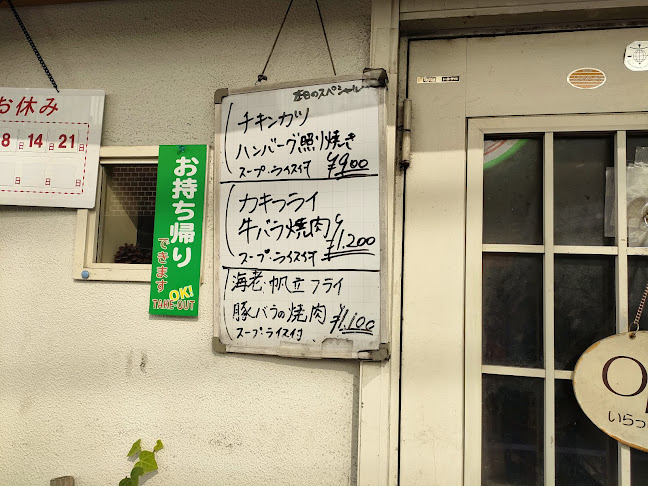 お休み
8日 14日 21日
日 日 日
お持ち帰り
できます
OK!
TAKE-OUT
本日のスペシャル
チキンカツ
ハンバーグ照り焼き
スープ・ライス付 ¥900
カキフライ
牛バラ焼肉
スープ・ライス付 ¥1,200
海老・帆立フライ
豚バラの焼肉 ¥1,100
スープ・ライス付
いらっ